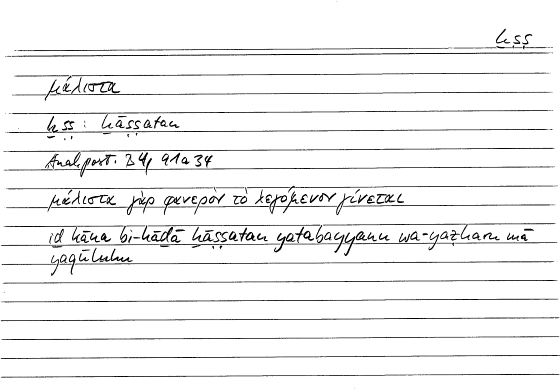 ẖṣṣ
μάλιστα
ẖṣṣ : ẖāṣṣatan
Anal. post. B 4, 91a34
μάλιστα γὰρ φανερὸν τὸ λεγόμενον γίνεται
iḏ kāna bi-hāḏā ẖāṣṣatan yatabayyanu wa-yaẓharu mā
yaqūluhu